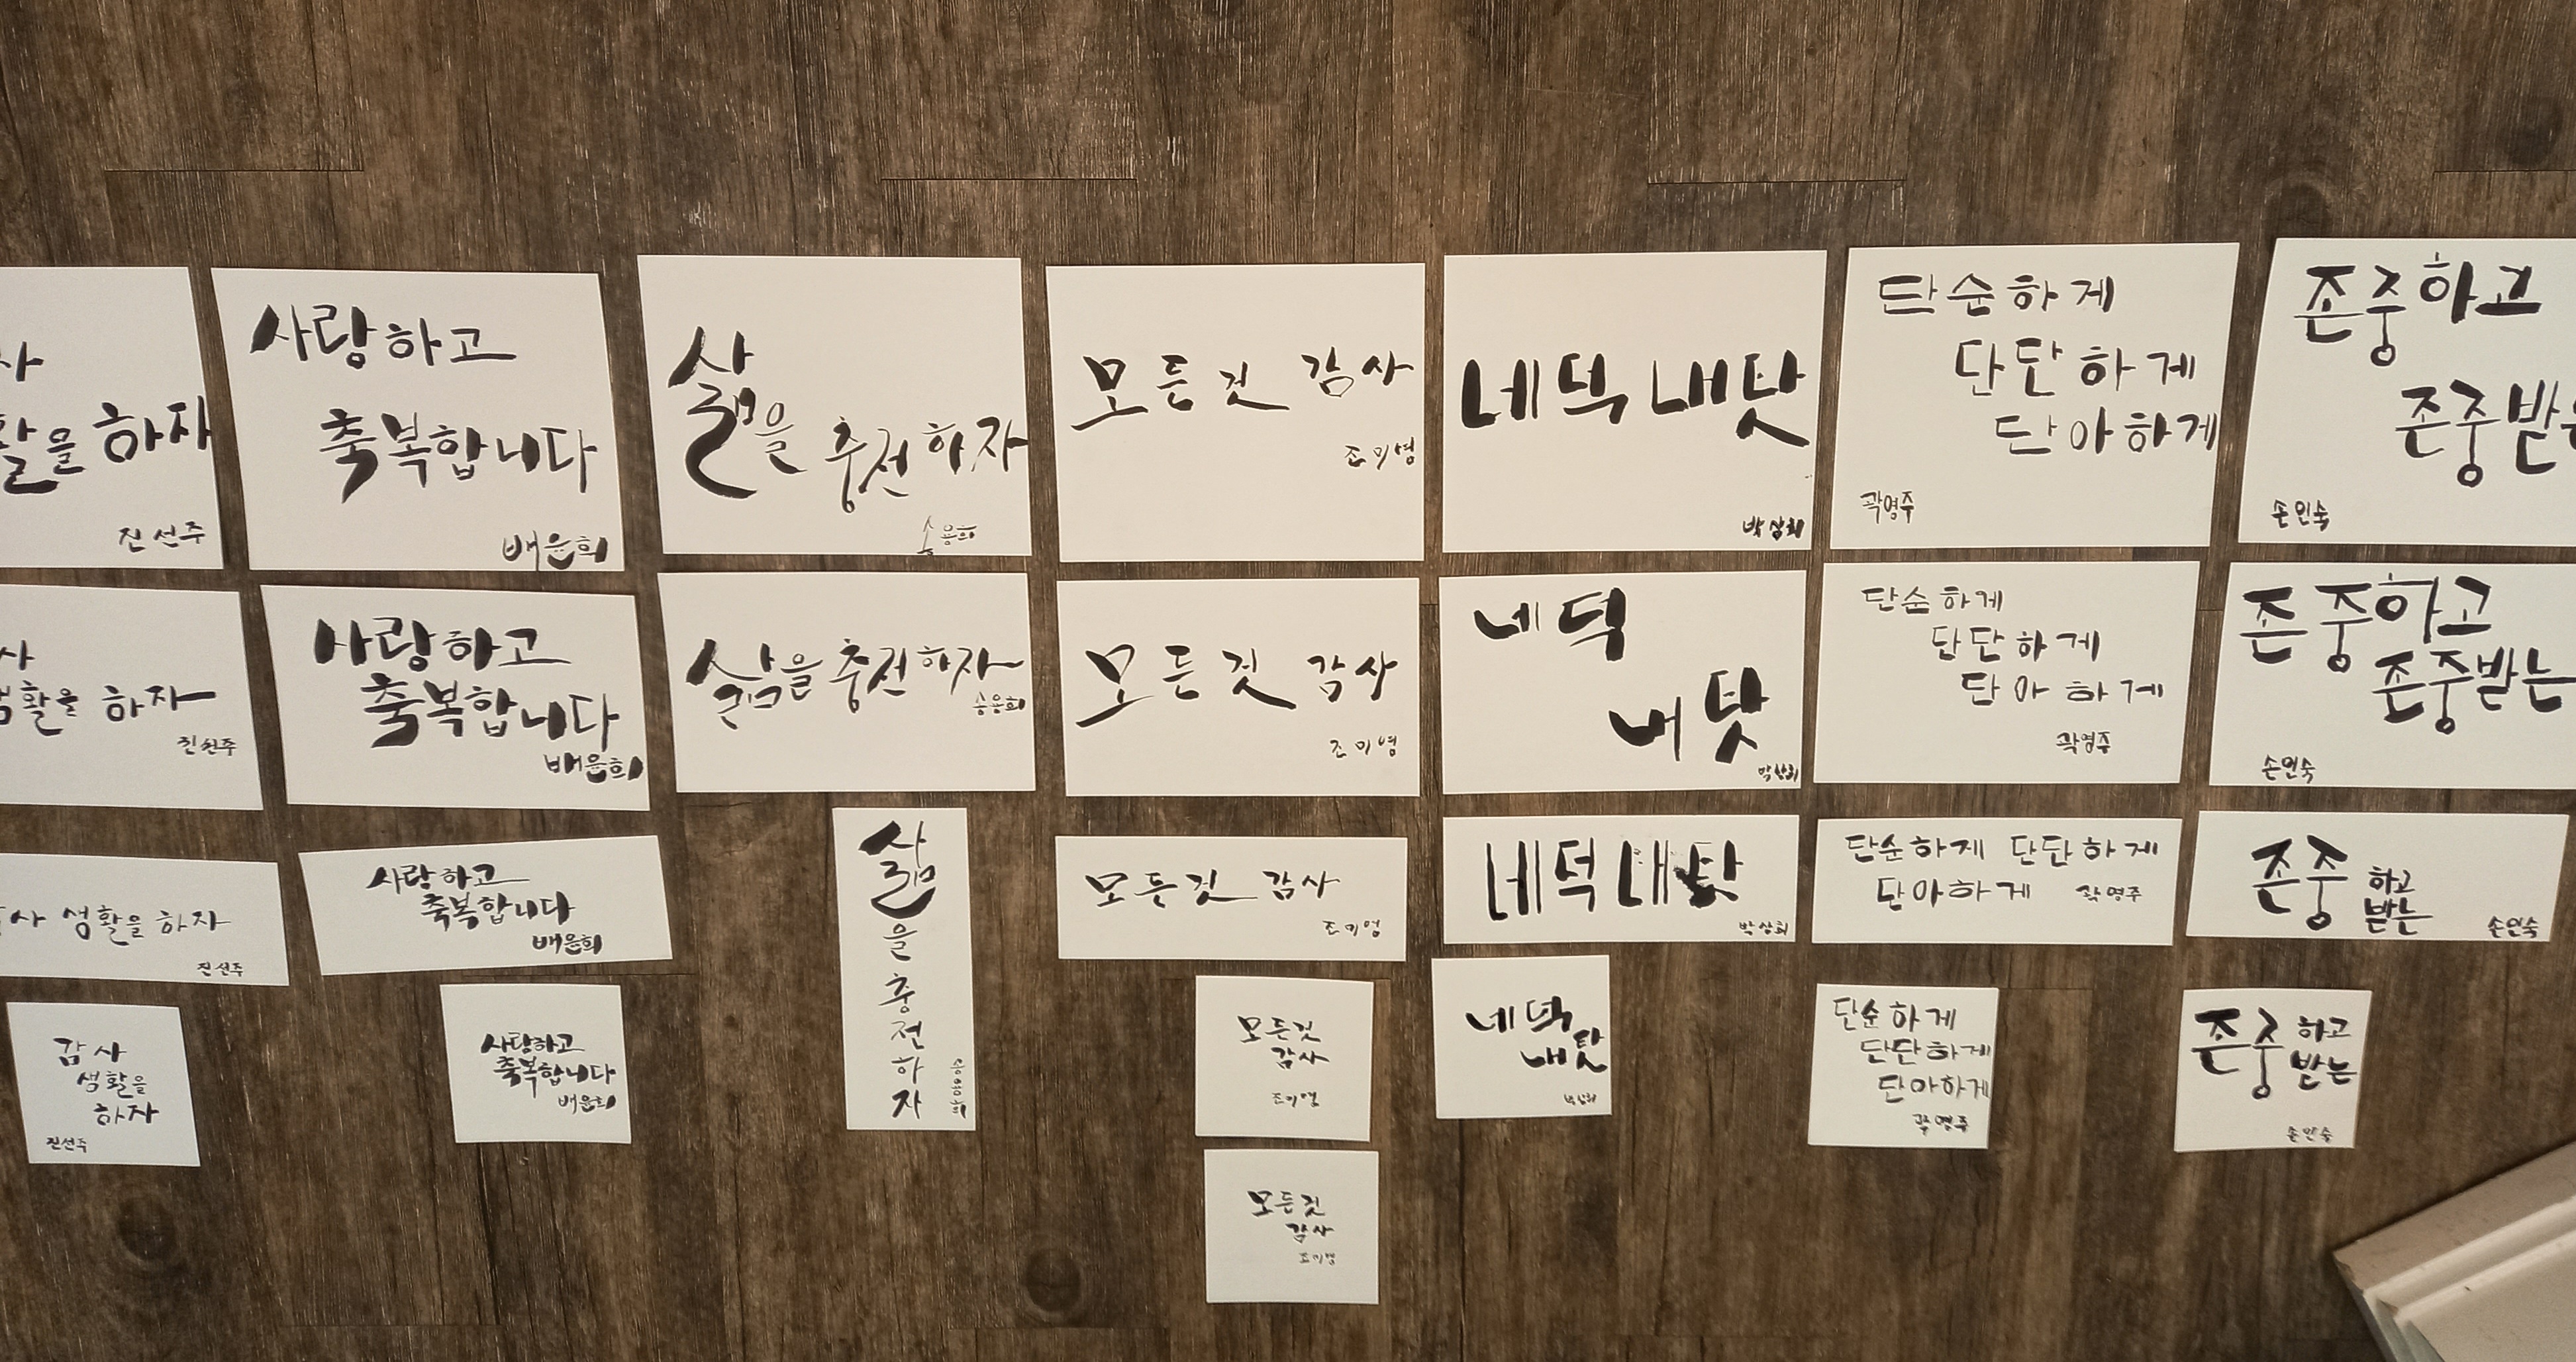 사
활을 하자
진선주
사랑하고
축복합니다
배윤희
삶을 충전하자
송용희
모든것 감사
조미영
네덕 내탓
박상희
단순하게
단단하게
단아하게
곽영주
존중하고
존중받는
손인숙
사
생활을 하자
진선주
사랑하고
축복합니다
배윤희
삶을 충전하자
송용희
모든것 감사
조미영
네덕
내탓
박상희
단순하게
단단하게
단아하게
곽영주
존중하고
존중받는
손인숙
사 생활을 하자
진선주
사랑하고
축복합니다
배윤희
삶을충전하자
송용희
모든것 감사
조미영
네덕내탓
박상희
단순하게 단단하게
단아하게 곽영주
존중 하고
받는
손인숙
감사
생활을
하자
진선주
사랑하고
축복합니다
배윤희
모든것
감사
조미영
네덕
내탓
박상희
단순하게
단단하게
단아하게
곽영주
존중 하고
받는
손인숙
모든것
감사
조미영